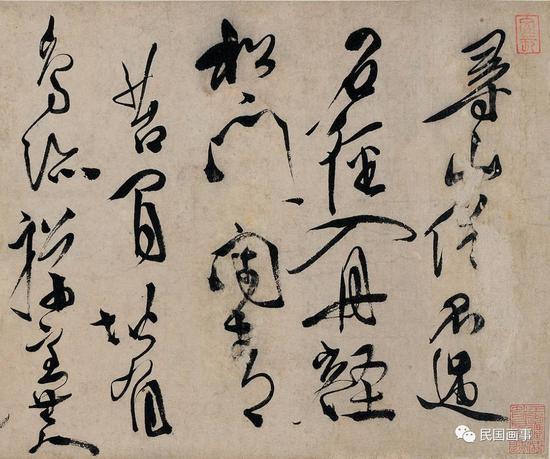 尋山僧不遇
石徑入丹壑
松門閉青
苔閒堦有
鳥跡禪室無人
民国画事